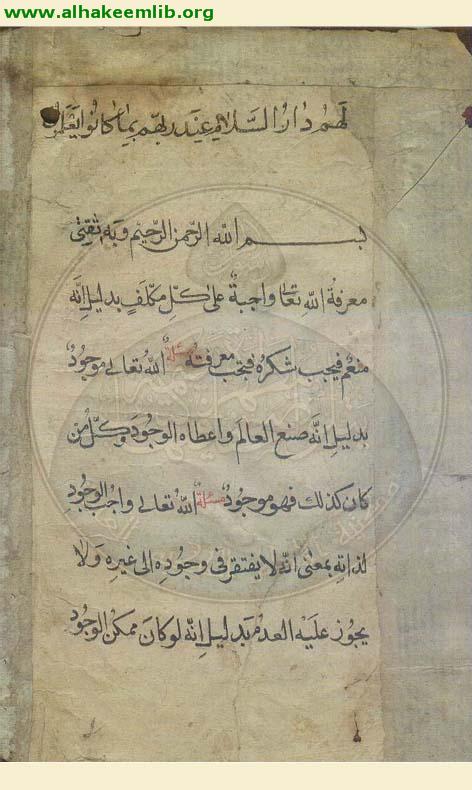 www.alhakeemlib.org
لَهُم دَارُ السَّلَامِ عِنْدَ رَبِّهِم بِمَا كَانُوا يَعْمَلُونَ
بسم الله الرّحمن الرّحيم وَبِهِ ثِقَتِي
معرفةُ اللّهِ تعالى واجبةٌ على كلِّ مكلّفٍ بدليلِ انّه
منعمٌ فيجب شكرُه فتجب معرفتُه مسئلة اللّهُ تعالى موجودٌ
بدليلِ انّه صنع العالمَ واعطاه الوجودَ وكلُّ من
كان كذلك فهو موجودٌ مسئلة اللّهُ تعالى واجبُ الوجودِ
لذاتِهِ بمعنى انّه لا يفتقر في وجودِه الى غيرِه وَلا
يجوز عليه العدمُ بدليلِ انّه لو كان ممكن الوجودِ